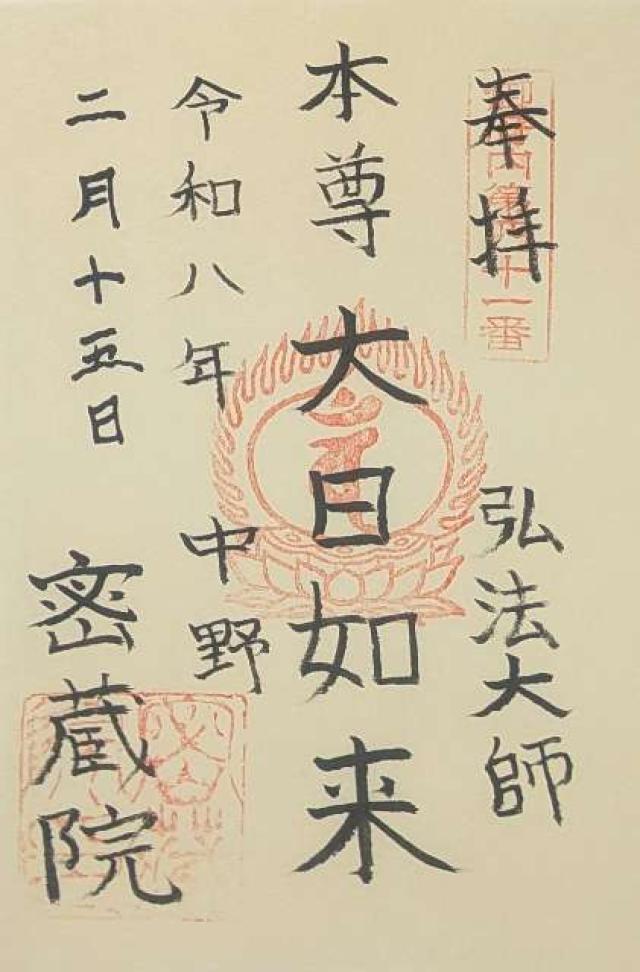 奉拝
弘法大師
本尊 大日如来
中野
令和八年
二月十五日
密蔵院